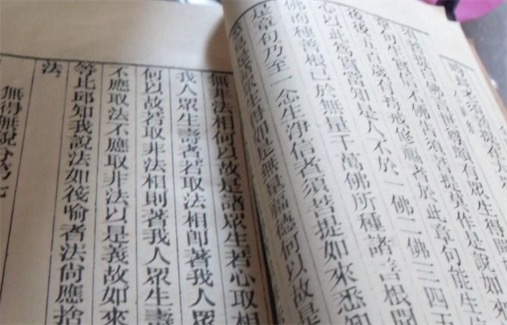 世尊頗有眾生得聞
生實信不佛告須菩提莫作是說如來
後後五百歲有持戒修福者於此章句能生
心以此爲實當知是人不於一佛二佛三四五
佛而種善根已於無量千萬佛所種諸善根聞
是章句乃至一念生淨信者須菩提如來悉知
見是諸眾生得如是無量福德何以故是
無非法相何以故是諸眾生若心取相
我人眾生壽者若取法相卽著我人眾
何以故若取非法相則著我人眾生壽
不應取法不應取非法以是義故如來
等比邱知我說法如筏喻者法尚應捨
法
無得無說分第七